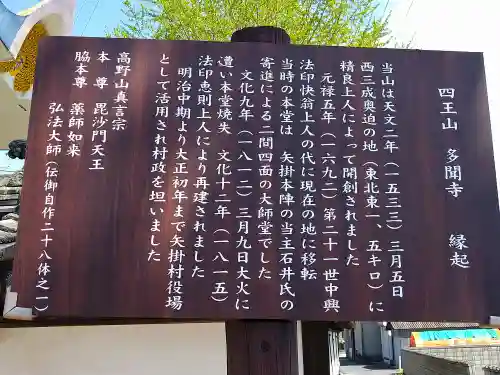 四王山 多聞寺 縁起
当山は天文二年(一五三三)三月五日
西三成奥迫の地(東北東一、五キロ)に
精良上人によって開創されました
元禄五年(一六九二)第二十一世中興
法印快翁上人の代に現在の地に移転
当時の本堂は 矢掛本陣の当主石井氏の
寄進による二間四面の大師堂でした
文化九年(一八一二)三月九日大火に
遭い本堂焼失 文化十二年(一八一五)
法印恵則上人により再建されました
明治中期より大正初年まで矢掛村役場
として活用され村政を担いました
高野山真言宗
本尊 毘沙門天王
脇本尊 薬師如来
弘法大師(伝御自作二十八体之一)